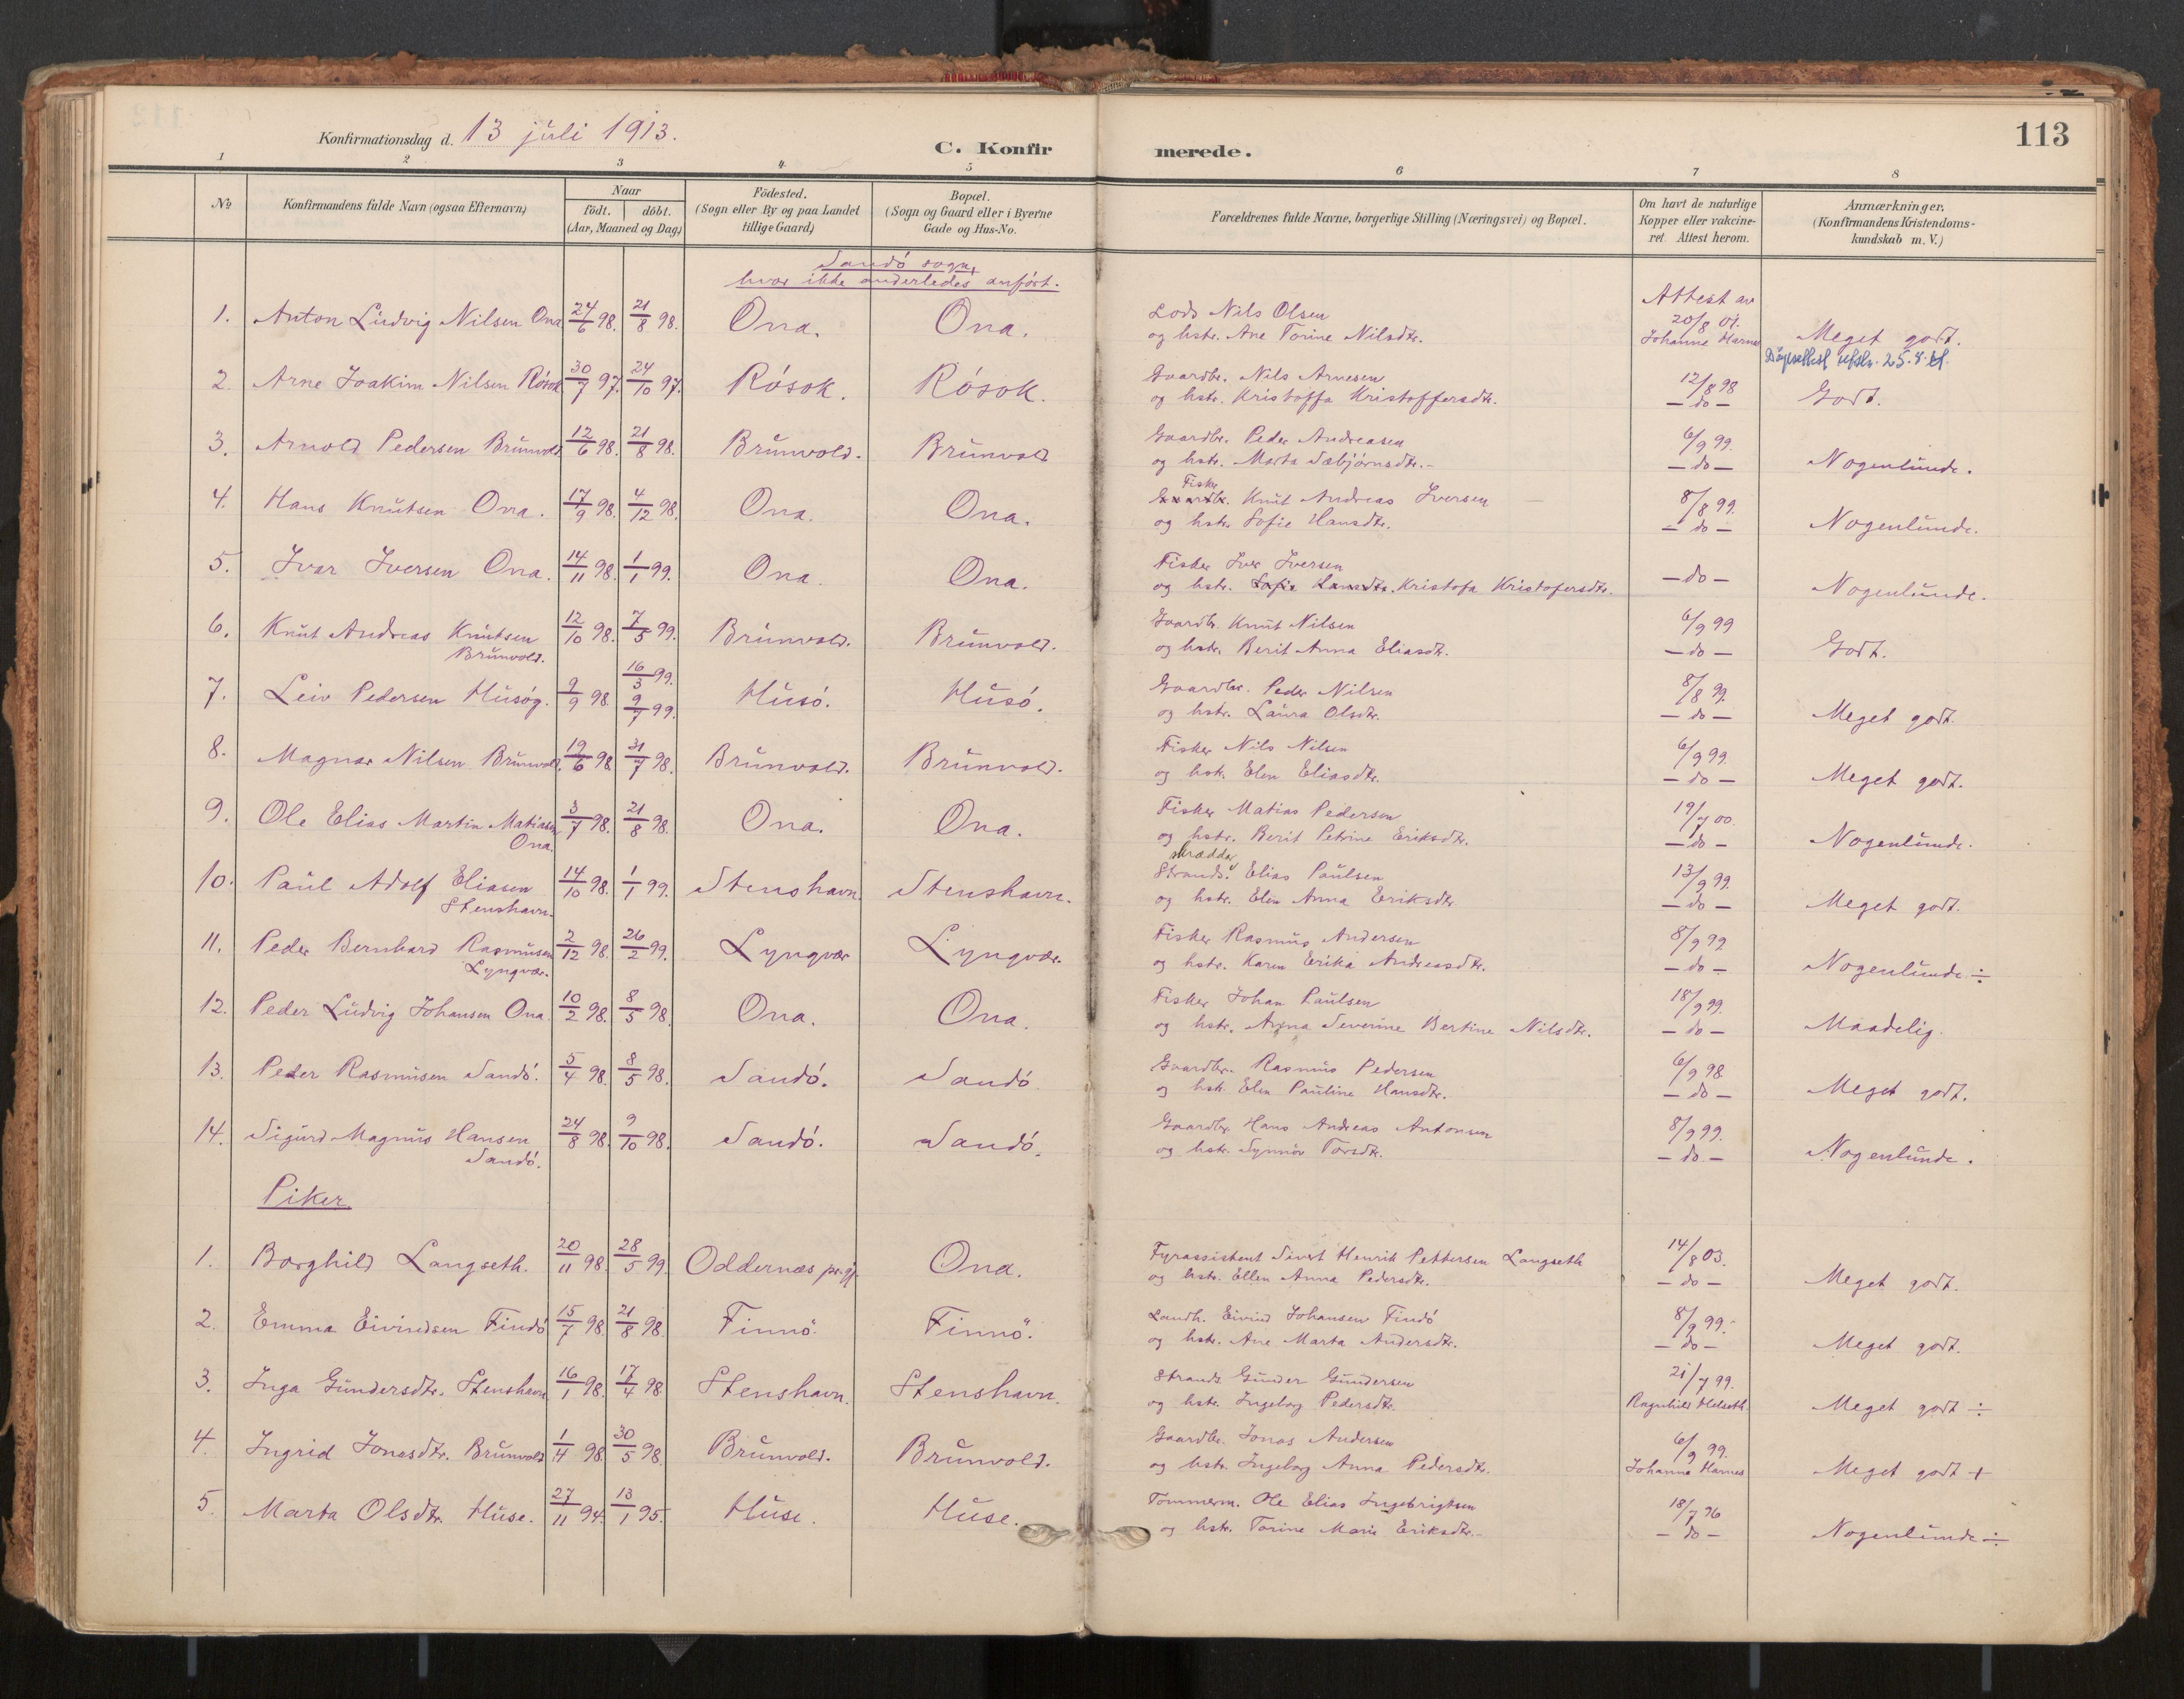 113
Konfirmationsdag d. 13 juli 1913.
C. Konfirmerede.
1 2 3 4 5 6 7 8
No.
Konfirmandens fulde Navn (ogsaa Efternavn)
Naar
födt. | döbt.
(Aar, Maaned og Dag)
Födested.
(Sogn eller By og paa Landet
tillige Gaard)
Bopæl.
(Sogn og Gaard eller i Byerne
Gade og Hus-No.
Forældrenes fulde Navne, borgerlige Stilling (Næringsvei) og Bopæl.
Om havt de naturlige
Kopper eller vakcine-
ret. Attest herom.
Anmærkninger.
(Konfirmandens Kristendoms-
kundskab m. V.)
Sandö sogn,
hvor ikke anderledes anfört.
1. Anton Ludvig Nilsen Ona 24/6 98. 21/8 98. Ona. Ona. Lods Nils Olsen
og hstr. Ane Torine Nilsdtr. Attest av 20/8 01. Johanne Harnes Meget godt.
25.8.
2. Arne Joakim Nilsen Rösok 30/7 97. 24/10 97. Rösok. Rösok. Gaardbr. Nils Arnesen
og hstr. Kristoffa Kristoffersdtr. 12/8 98 — do — Godt.
3. Arnold Pedersen Brunvold 12/6 98. 21/8 98. Brunvold. Brunvold Gaardbr. Peder Andreasen
og hstr. Marta Sæbjörnsdtr. 6/9 99. — do — Nogenlunde.
4. Hans Knutsen Ona. 17/9 98. 4/12 98. Ona. Ona. Fisker
Gaardbr. Knut Andreas Iversen
og hstr. Sofie Hansdtr. 8/8 99. — do — Nogenlunde.
5. Ivar Iversen Ona. 14/11 98. 1/1 99. Ona. Ona. Fisker Iver Iversen
og hstr. Sofie Hansdtr. Kristofa Kristofersdtr. — do — Nogenlunde.
6. Knut Andreas Knutsen
Brunvold. 12/10 98. 7/5 99. Brunvold. Brunvold. Gaardbr. Knut Nilsen
og hstr. Berit Anna Eliasdtr. 6/9 99 — do — Godt.
7. Leiv Pedersen Husög. 9/9 98 16/3 99. 9/7 99. Husö. Husö. Gaardbr. Peder Nilsen
og hstr. Laura Olsdtr. 8/8 99. — do — Meget godt.
8. Magnar Nilsen Brunvold. 19/6 98 31/7 98. Brunvold. Brunvold. Fisker Nils Nilsen
og hstr. Elen Eliasdtr. 6/9 99. — do — Meget godt.
9. Ole Elias Martin Matiasen
Ona. 3/7 98. 21/8 98. Ona. Ona. Fisker Matias Pedersen
og hstr. Berit Petrine Eriksdtr. 19/7 00. — do — Nogenlunde.
10. Paul Adolf Eliasen
Stenshavn. 14/10 98. 1/1 99. Stenshavn. Stenshavn. skrædder
Strands. Elias Paulsen
og hstr. Elen Anna Eriksdtr. 13/9 99. — do — Meget godt.
11. Peder Bernhard Rasmusen
Lyngvær. 2/12 98. 26/2 99. Lyngvær Lyngvær. Fisker Rasmus Andersen
og hstr. Karen Erika Andreasdtr. 8/9 99 — do — Nogenlunde ÷
12. Peder Ludvig Johansen Ona 10/2 98. 8/5 98. Ona. Ona. Fisker Johan Paulsen
og hstr. Anna Severine Bertine Nilsdtr. 18/9 99. — do — Maadelig.
13. Peder Rasmusen Sandö. 5/4 98. 8/5 98. Sandö. Sandö Gaardbr. Rasmus Pedersen
og hstr. Elen Pauline Hansdtr. 6/9 98 — do — Meget godt.
14. Sigurd Magnus Hansen
Sandö. 24/8 98. 9/10 98. Sandö. Sandö. Gaardbr. Hans Andreas Antonsen
og hstr. Synnöv Torsdtr. 8/9 99. — do — Nogenlunde.
Piker.
1. Borghild Langseth. 20/11 98. 28/5 99. Oddernæs pr.gj. Ona. Fyrassistent Sivert Henrik Pettersen Langseth
og hstr. Ellen Anna Pedersdtr. 14/8 03. — do — Meget godt.
2. Emma Eivindsen Findö 15/7 98. 21/8 98. Finnö. Finnö. Landh. Eivind Johansen Findö
og hstr. Ane Marta Andersdtr. 8/9 99. — do — Meget godt.
3. Inga Gundersdtr. Stenshavn 16/1 98. 17/4 98 Stenshavn. Stenshavn. Strands. Gunder Gundersen
og hstr. Ingeborg Pedersdtr. 21/7 99. Ragnhild Helseth. Meget godt ÷
4. Ingrid Jonasdtr. Brunvold 1/4 98. 30/5 98. Brunvold. Brunvold. Gaardbr. Jonas Andersen
og hstr. Ingeborg Anna Pedersdtr. 6/9 99. Johanna Harnes Meget godt +
5. Marta Olsdtr. Huse. 27/11 94. 13/1 95. Huse. Huse. Tömmerm. Ole Elias Ingebrigtsen
og hstr. Torine Marie Eriksdtr. 18/7 96 — do — Nogenlunde ÷